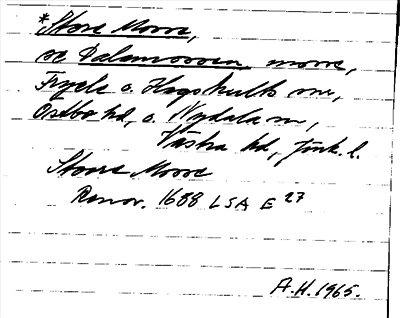 *Store Mosse,
se Dalamossen mosse,
Fryele o. Hagshults snr,
Östbo hd, o. Nydala sn,
Västra hd, Jönk. l.
Stoora Mosse
Renov. 1688 LSA E 27
A.H. 1965.